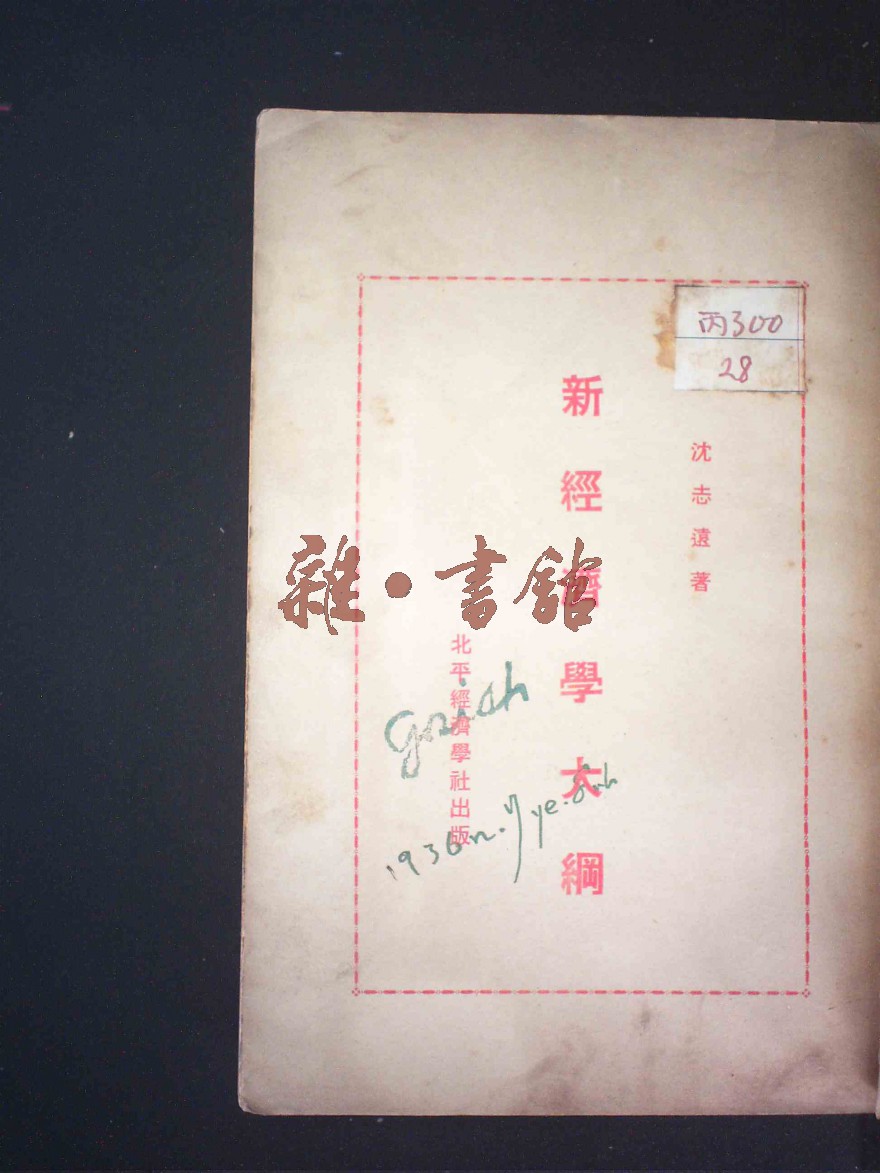 丙300
28
沈志遠著
新經濟學大綱
雜·書舘
北平經濟學社出版
1936n.7ye.8.h